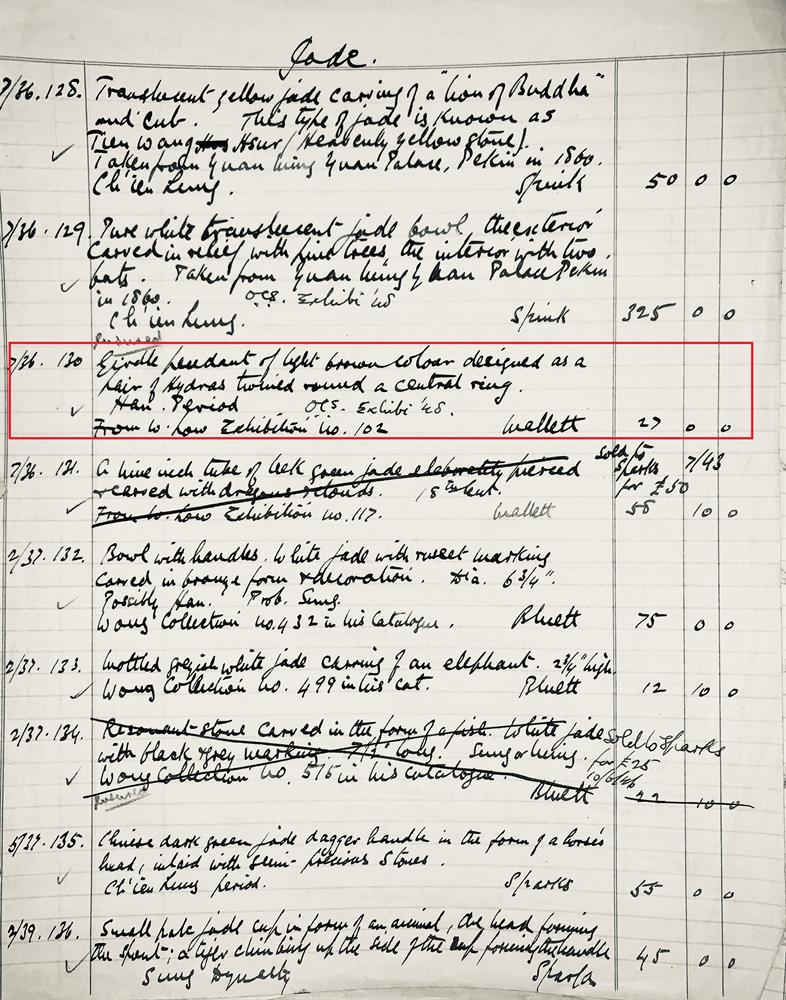 Jade.
7/36. 128. Translucent yellow jade carving of a "lion of Buddha"
and cub. This type of jade is known as
Tien Wang Hsur (Heavenly yellow stone).
Taken from Yuan Ming Yuan Palace, Pekin in 1860.
Ch'ien Lung. Spink 50 0 0
7/36. 129. Pure white translucent jade bowl, the exterior
carved in relief with pine trees, the interior with two
bats. Taken from Yuan Ming Yuan Palace Pekin
in 1860. O.C.S. Exhibi '48
Ch'ien Lung. Spink 325 0 0
7/36. 130 Girdle pendant of light brown colour designed as a
pair of Hydras twined round a central ring.
Han Period OCS. Exhibi '48.
From W. Low Exhibition no. 102 Mallett 27 0 0
7/36. 131. A nine inch tube of leek green jade elaborately pierced
& carved with dragons & clouds. 18th Cent.
From W. Low Exhibition no. 117. Mallett 58 10 0
Sold to 7/43
Sparks
for £50
2/37. 132. Bowl with handles. White jade with russet marking
carved in bronze form & decoration. Dia. 6 3/4".
Possibly Han. Prob. Sung.
Wong Collection no. 432 in his Catalogue. Bluett 75 0 0
2/37. 133. Mottled greyish white jade carving of an elephant. 2 3/4" high.
Wong Collection no. 499 in his cat. Bluett 12 10 0
2/37. 134. Resonant stone carved in the form of a fish. White jade
with black & grey marking. 7 1/2" long. Sung or Ming.
Wong Collection no. 515 in his catalogue.
Bluett 22 10 0
Sold to Sparks
for £25
10/6/46
5/37. 135. Chinese dark green jade dagger handle in the form of a horse's
head, inlaid with semi-precious stones.
Ch'ien Lung period. Sparks 55 0 0
2/39. 136. Small pale jade cup in form of an animal, the head forming
the spout; a tiger climbing up the side of the cup forming the handle
Sung Dynasty Sparks 45 0 0